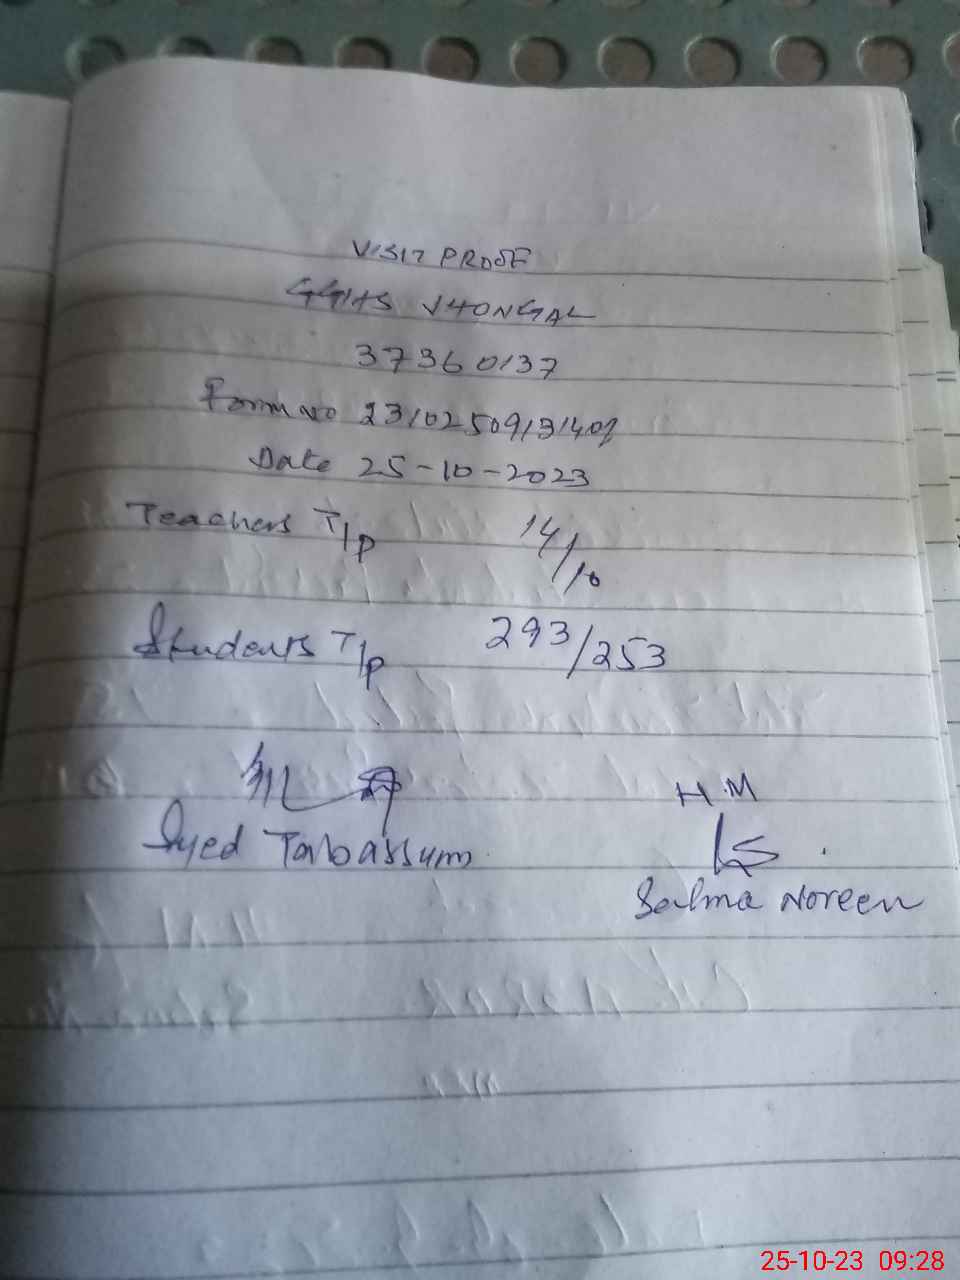 VISIT PROOF
GGHS JHONGAL
37360137
Form No 23102509131409
Date 25-10-2023
Teachers T/P 14/10
Students T/P 293/253
Syed Tabassum
H.M
Salma Noreen
25-10-23 09:28